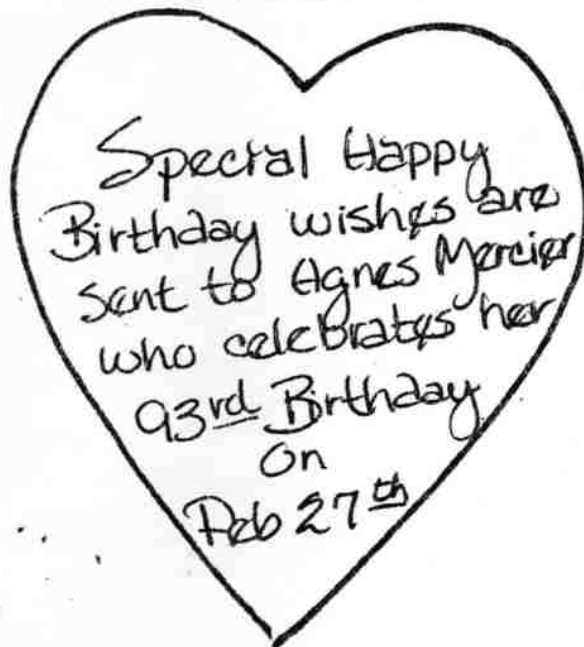 Special Happy
Birthday wishes are
sent to Agnes Mercier
who celebrates her
93rd Birthday
On
Feb 27th